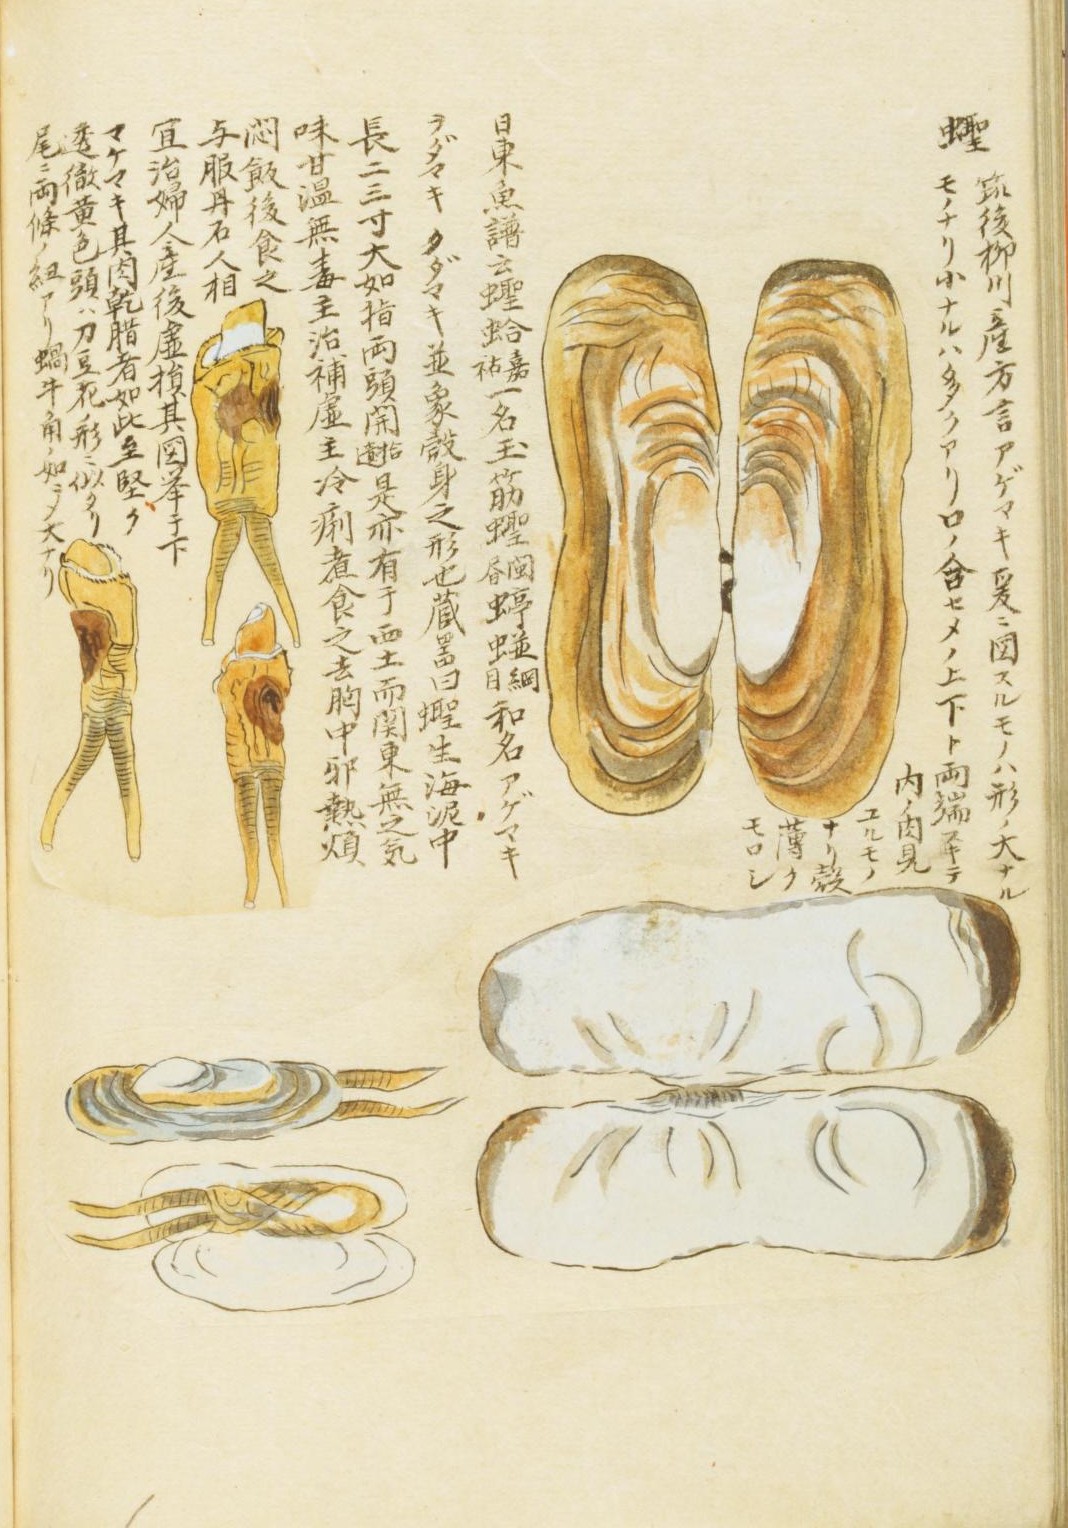 蟶
筑後柳川産方言アゲマキ爰ニ図スルモノハ形ノ大ナル
モノナリ小ナルハ多クアリ口ノ合セメノ上下ト両端スキテ
内ノ肉見
エルモノ
ナリ殻
薄ク
モロシ
日東魚譜云蟶蛤嘉祐一名玉筋蟶閩昼蝏䗒綱目和名アゲマキ
ヲダマキ クダマキ並象殻身之形也蔵噐曰蟶生海泥中
長二三寸大如指両頭開拾遺是亦有于西土而関東無之気
味甘温無毒主治補虚主冷痢煮食之去胸中邪熱煩
悶飯後食之
与服丹石人相
宜治婦人産後虚損其図挙于下
マケマキ其肉乾腊者如此至堅ク
透徹黄色頭ハ刀豆花ノ形ニ似タリ
尾ニ両條ノ紐アリ蝸牛角ノ如ニメ大ナリ